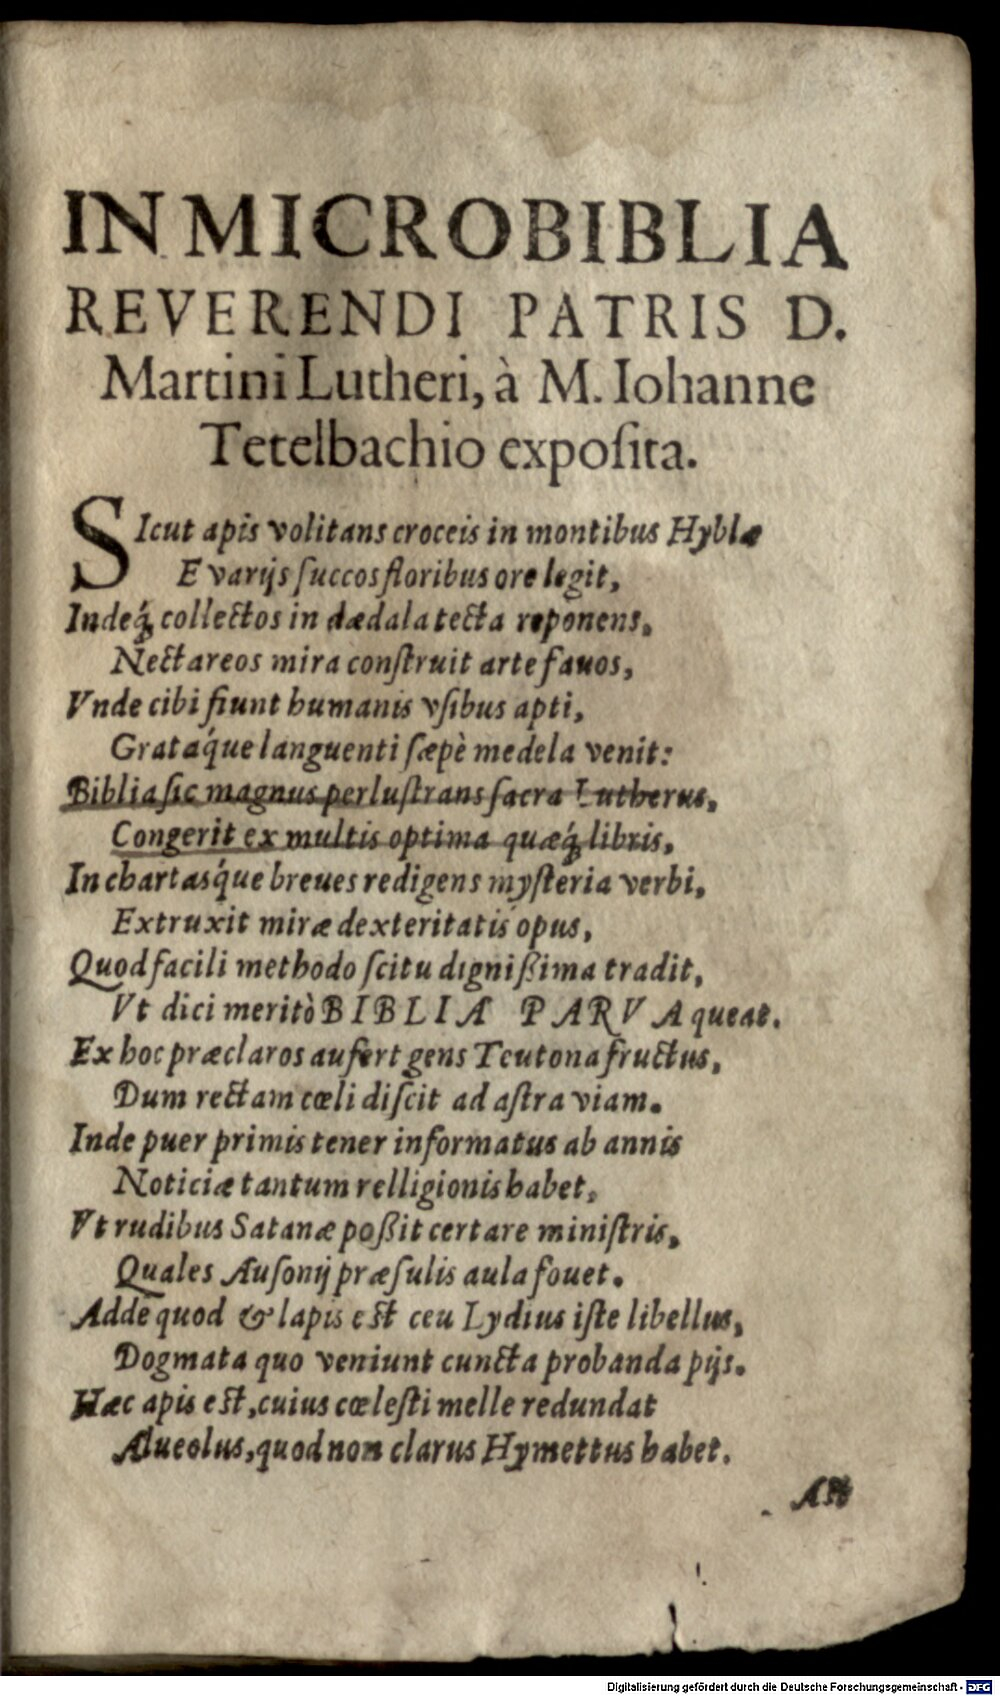 IN MICROBIBLIA
REVERENDI PATRIS D.
Martini Lutheri, à M. Iohanne
Tetelbachio exposita.
SIcut apis volitans croceis in montibus Hyblæ
E varijs succos floribus ore legit,
Indeq́; collectos in dædala tecta reponens,
Nectareos mira construit arte fauos,
Vnde cibi fiunt humanis vsibus apti,
Grataq́ue languenti sæpè medela venit:
Biblia sic magnus perlustrans sacra Lutherus,
Congerit ex multis optima quæq́; libris,
In chartasq́ue breues redigens mysteria verbi,
Extruxit miræ dexteritatis opus,
Quod facili methodo scitu dignißima tradit,
Vt dici meritò BIBLIA PARVA queat.
Ex hoc præclaros aufert gens Teutona fructus,
Dum rectam cœli discit ad astra viam.
Inde puer primis tener informatus ab annis
Noticiæ tantum relligionis habet,
Vt rudibus Satanæ poßit certare ministris,
Quales Ausonij præsulis aula fouet.
Adde quod & lapis est ceu Lydius iste libellus,
Dogmata quo veniunt cuncta probanda pijs.
Hæc apis est, cuius cœlesti melle redundat
Alueolus, quod non clarus Hymettus habet.
An
Digitalisierung gefördert durch die Deutsche Forschungsgemeinschaft - DFG